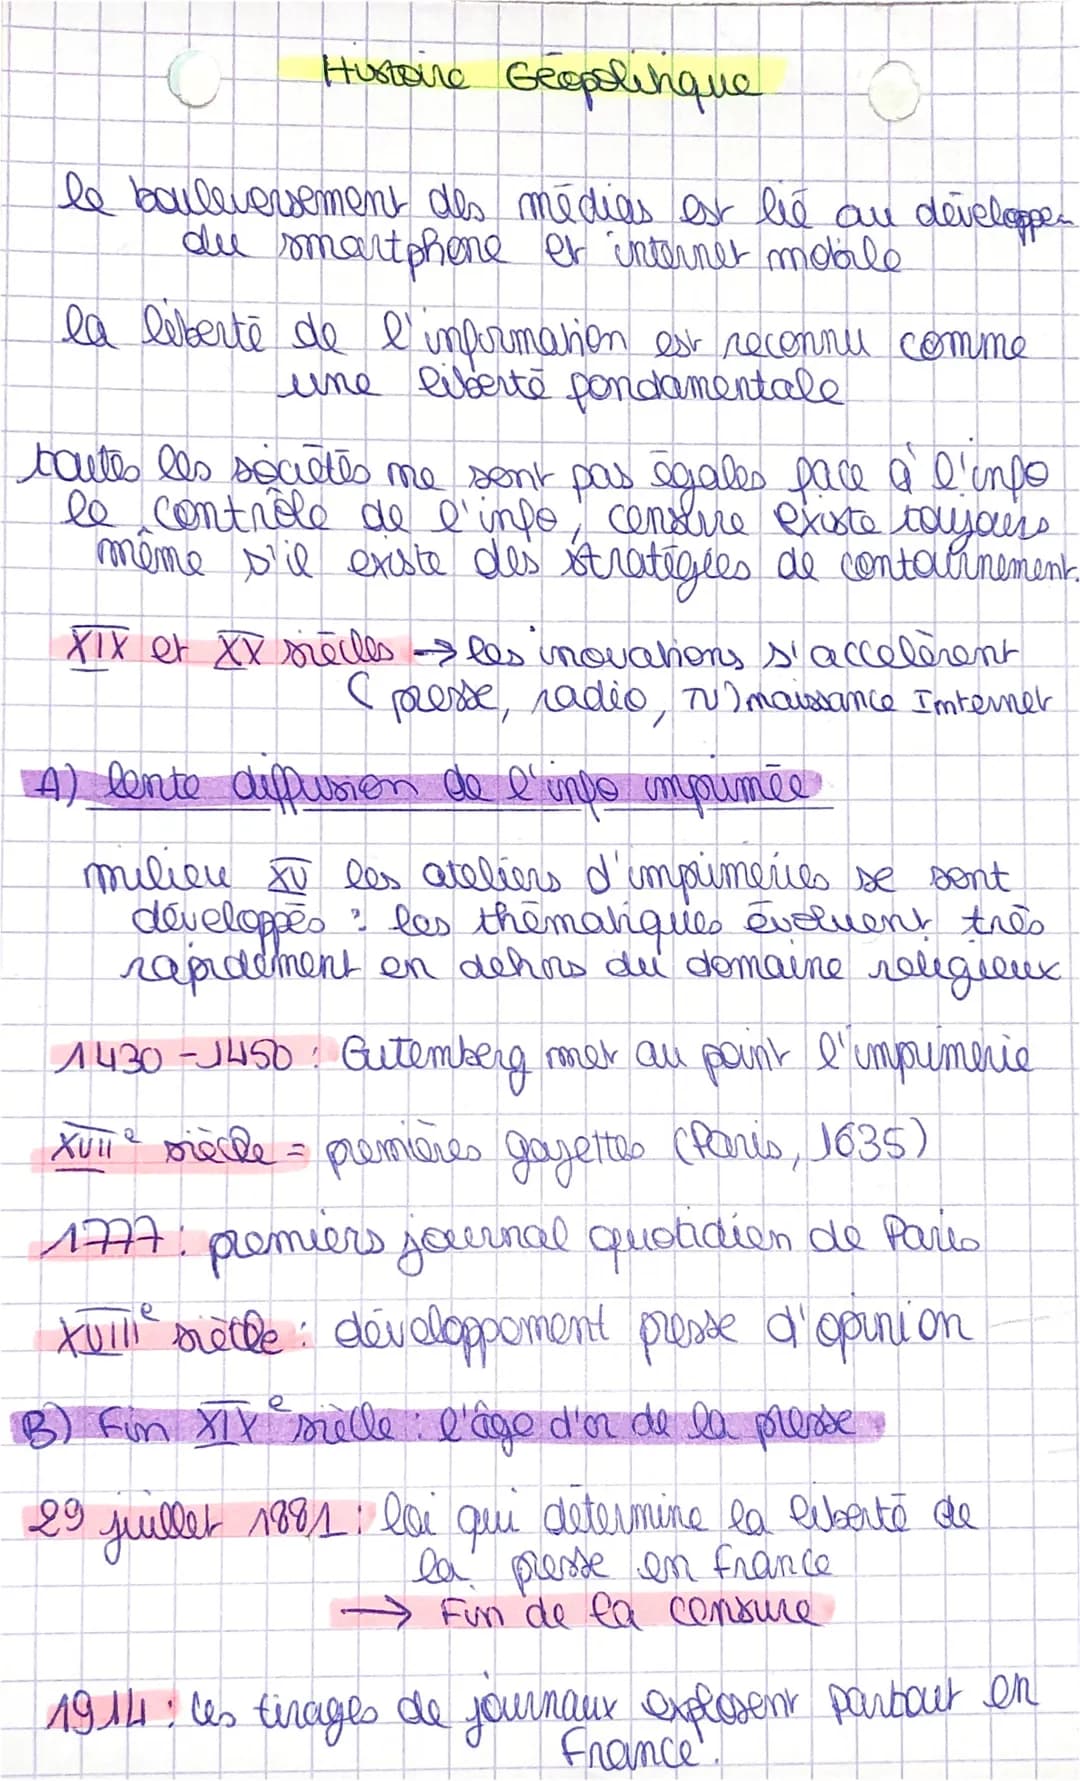 Histoire Géopolitique
le bouleversement des médias est lié au développe
du smartphone et internet mobile
la liberté de l'information est reconnu comme
une liberté fondamentale
toutes les sociétés ne sont pas égales face à l'info
le contrôle de l'info, censure existe toujours
même s'il existe des stratégies de contournement.
XIX et XX siècles → les inovations s'accelèrent
(presse, radio, TV) naissance Internet
A) lente diffusion de l'info imprimée
milieu XV les ateliers d'imprimeries se sont
développés : les thématiques évoluent très
rapidement en dehors du domaine religieux
1430-1450 : Gutemberg met au point l'imprimerie
XVII e siècle = premières gazettes (Paris, 1635)
1777 : premiers journal quotidien de Paris
XVIII e siècle : développement presse d'opinion
B) Fin XIX e siècle : l'âge d'or de la presse
29 juillet 1881 : loi qui détermine la liberté de
la presse en France
→ Fin de la censure
1914 : les tirages de journaux explosent partout en
France.